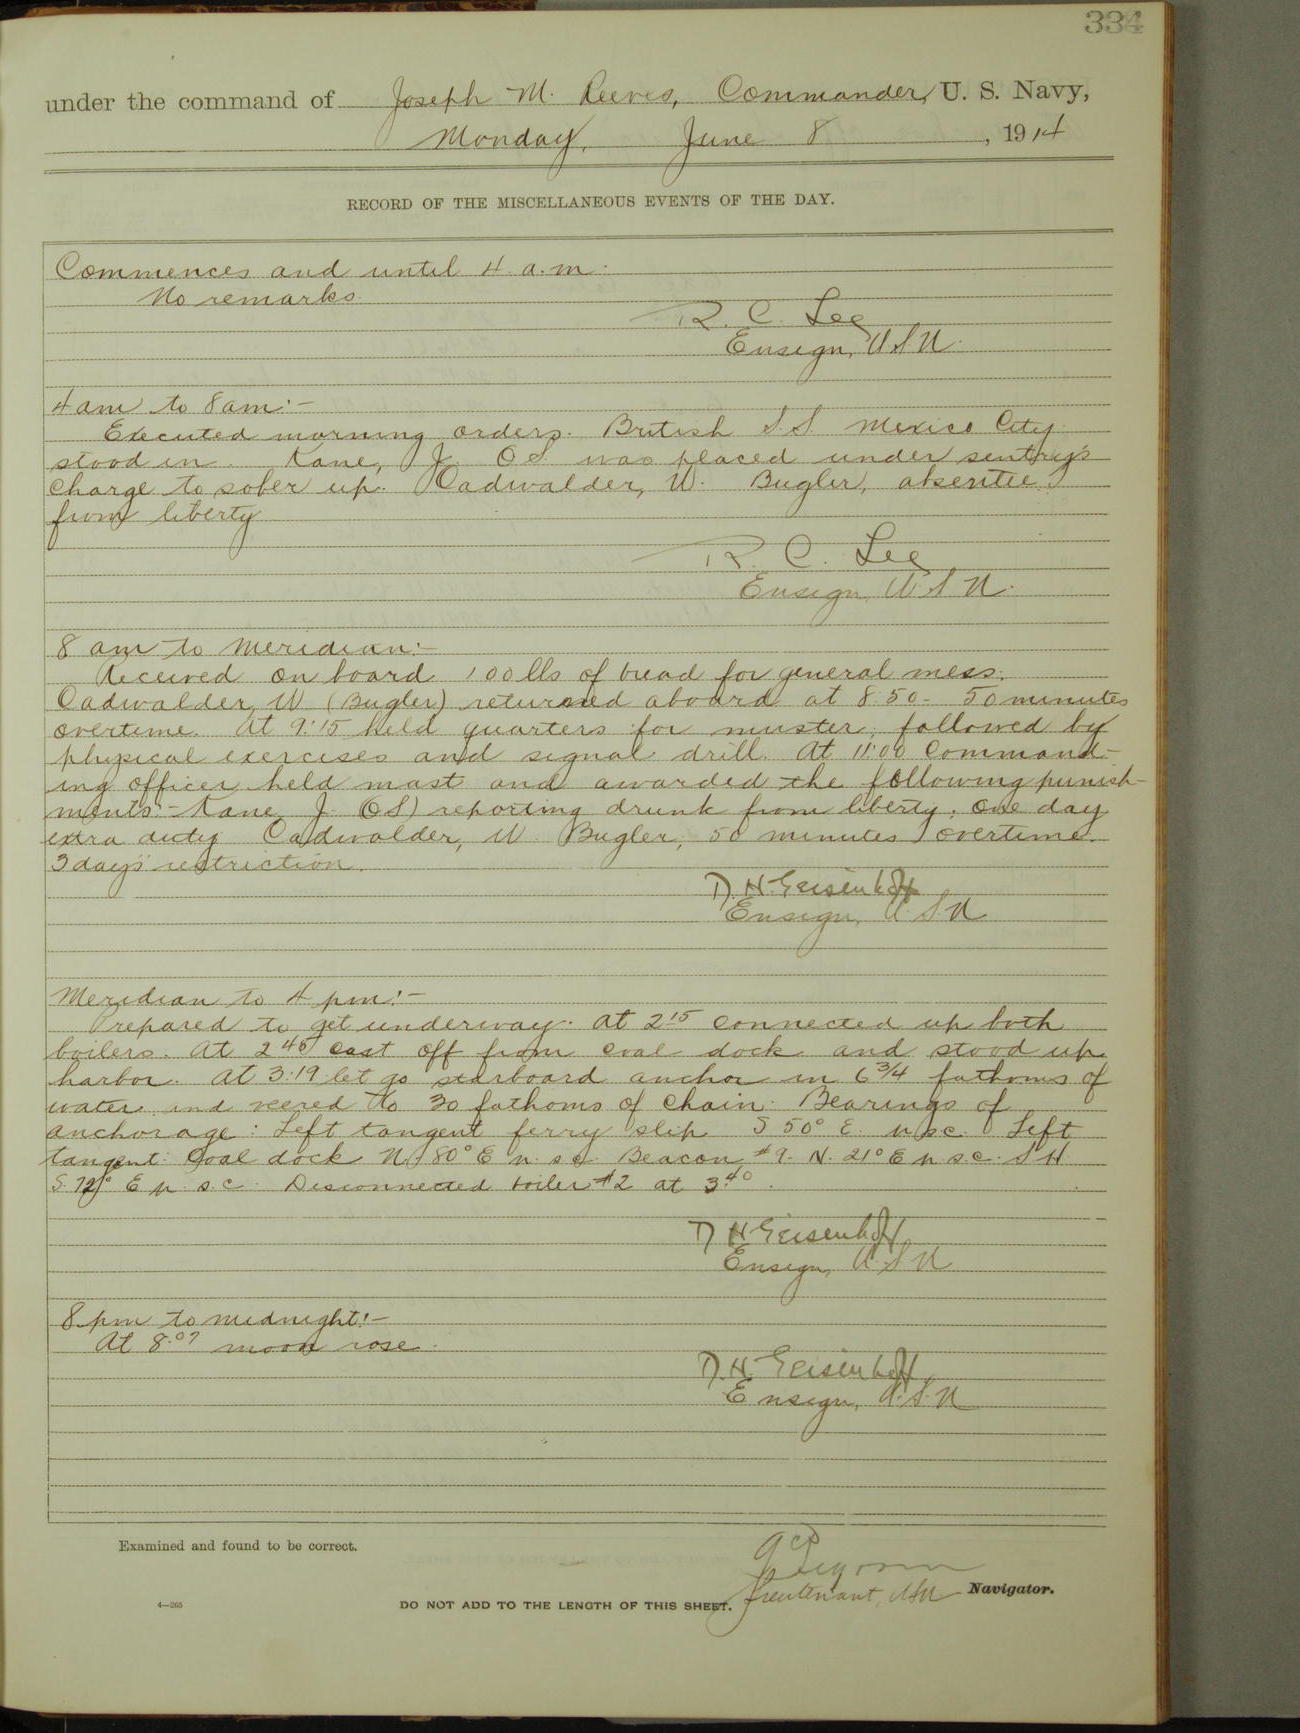 334
under the command of Joseph M. Reeves, Commander, U. S. Navy,
Monday, June 8, 1914
RECORD OF THE MISCELLANEOUS EVENTS OF THE DAY.
Commences and until 4 a.m.
No remarks.
R. C. Lee
Ensign, U.S.N.
4 am to 8 am:-
Executed morning orders. British S.S. Mexico City
stood in. Kane, J. OS was placed under sentry's
charge to sober up. Cadwalder, W. Bugler, absentee
from liberty
R. C. Lee
Ensign, U.S.N.
8 am to Meridian:-
Received on board 100 lbs of bread for general mess.
Cadwalder, W (Bugler) returned aboard at 8.50 - 50 minutes
overtime. At 9:15 held quarters for muster, followed by
physical exercises and signal drill. At 11:00 Command-
ing officer held mast and awarded the following punish-
ments:- Kane, J. OS) reporting drunk from liberty, one day
extra duty Cadwalder, W. Bugler, 50 minutes overtime.
3 days' restriction.
D. H. Geisenhoff
Ensign, U.S.N
Meridian to 4 pm:-
Prepared to get underway. At 2 15 connected up both
boilers. At 2 45 cast off from coal dock and stood up
harbor. At 3:19 let go starboard anchor in 6 3/4 fathoms of
water and veered to 30 fathoms of chain. Bearings of
anchorage: Left tangent ferry slip S 50° E. n.s.c. Left
tangent coal dock N. 80° E n.s.c. Beacon #9. N. 21° E n.s.c. S H
S. 72° E n.s.c. Disconnected boiler #2 at 3 40.
D H Geisenhoff
Ensign, U.S.N
8 pm to midnight:-
At 8.07 moon rose.
D. H. Geisenhoff
Ensign, U.S.N
Examined and found to be correct.
Lieutenant, USN Navigator.
4—265
DO NOT ADD TO THE LENGTH OF THIS SHEET.